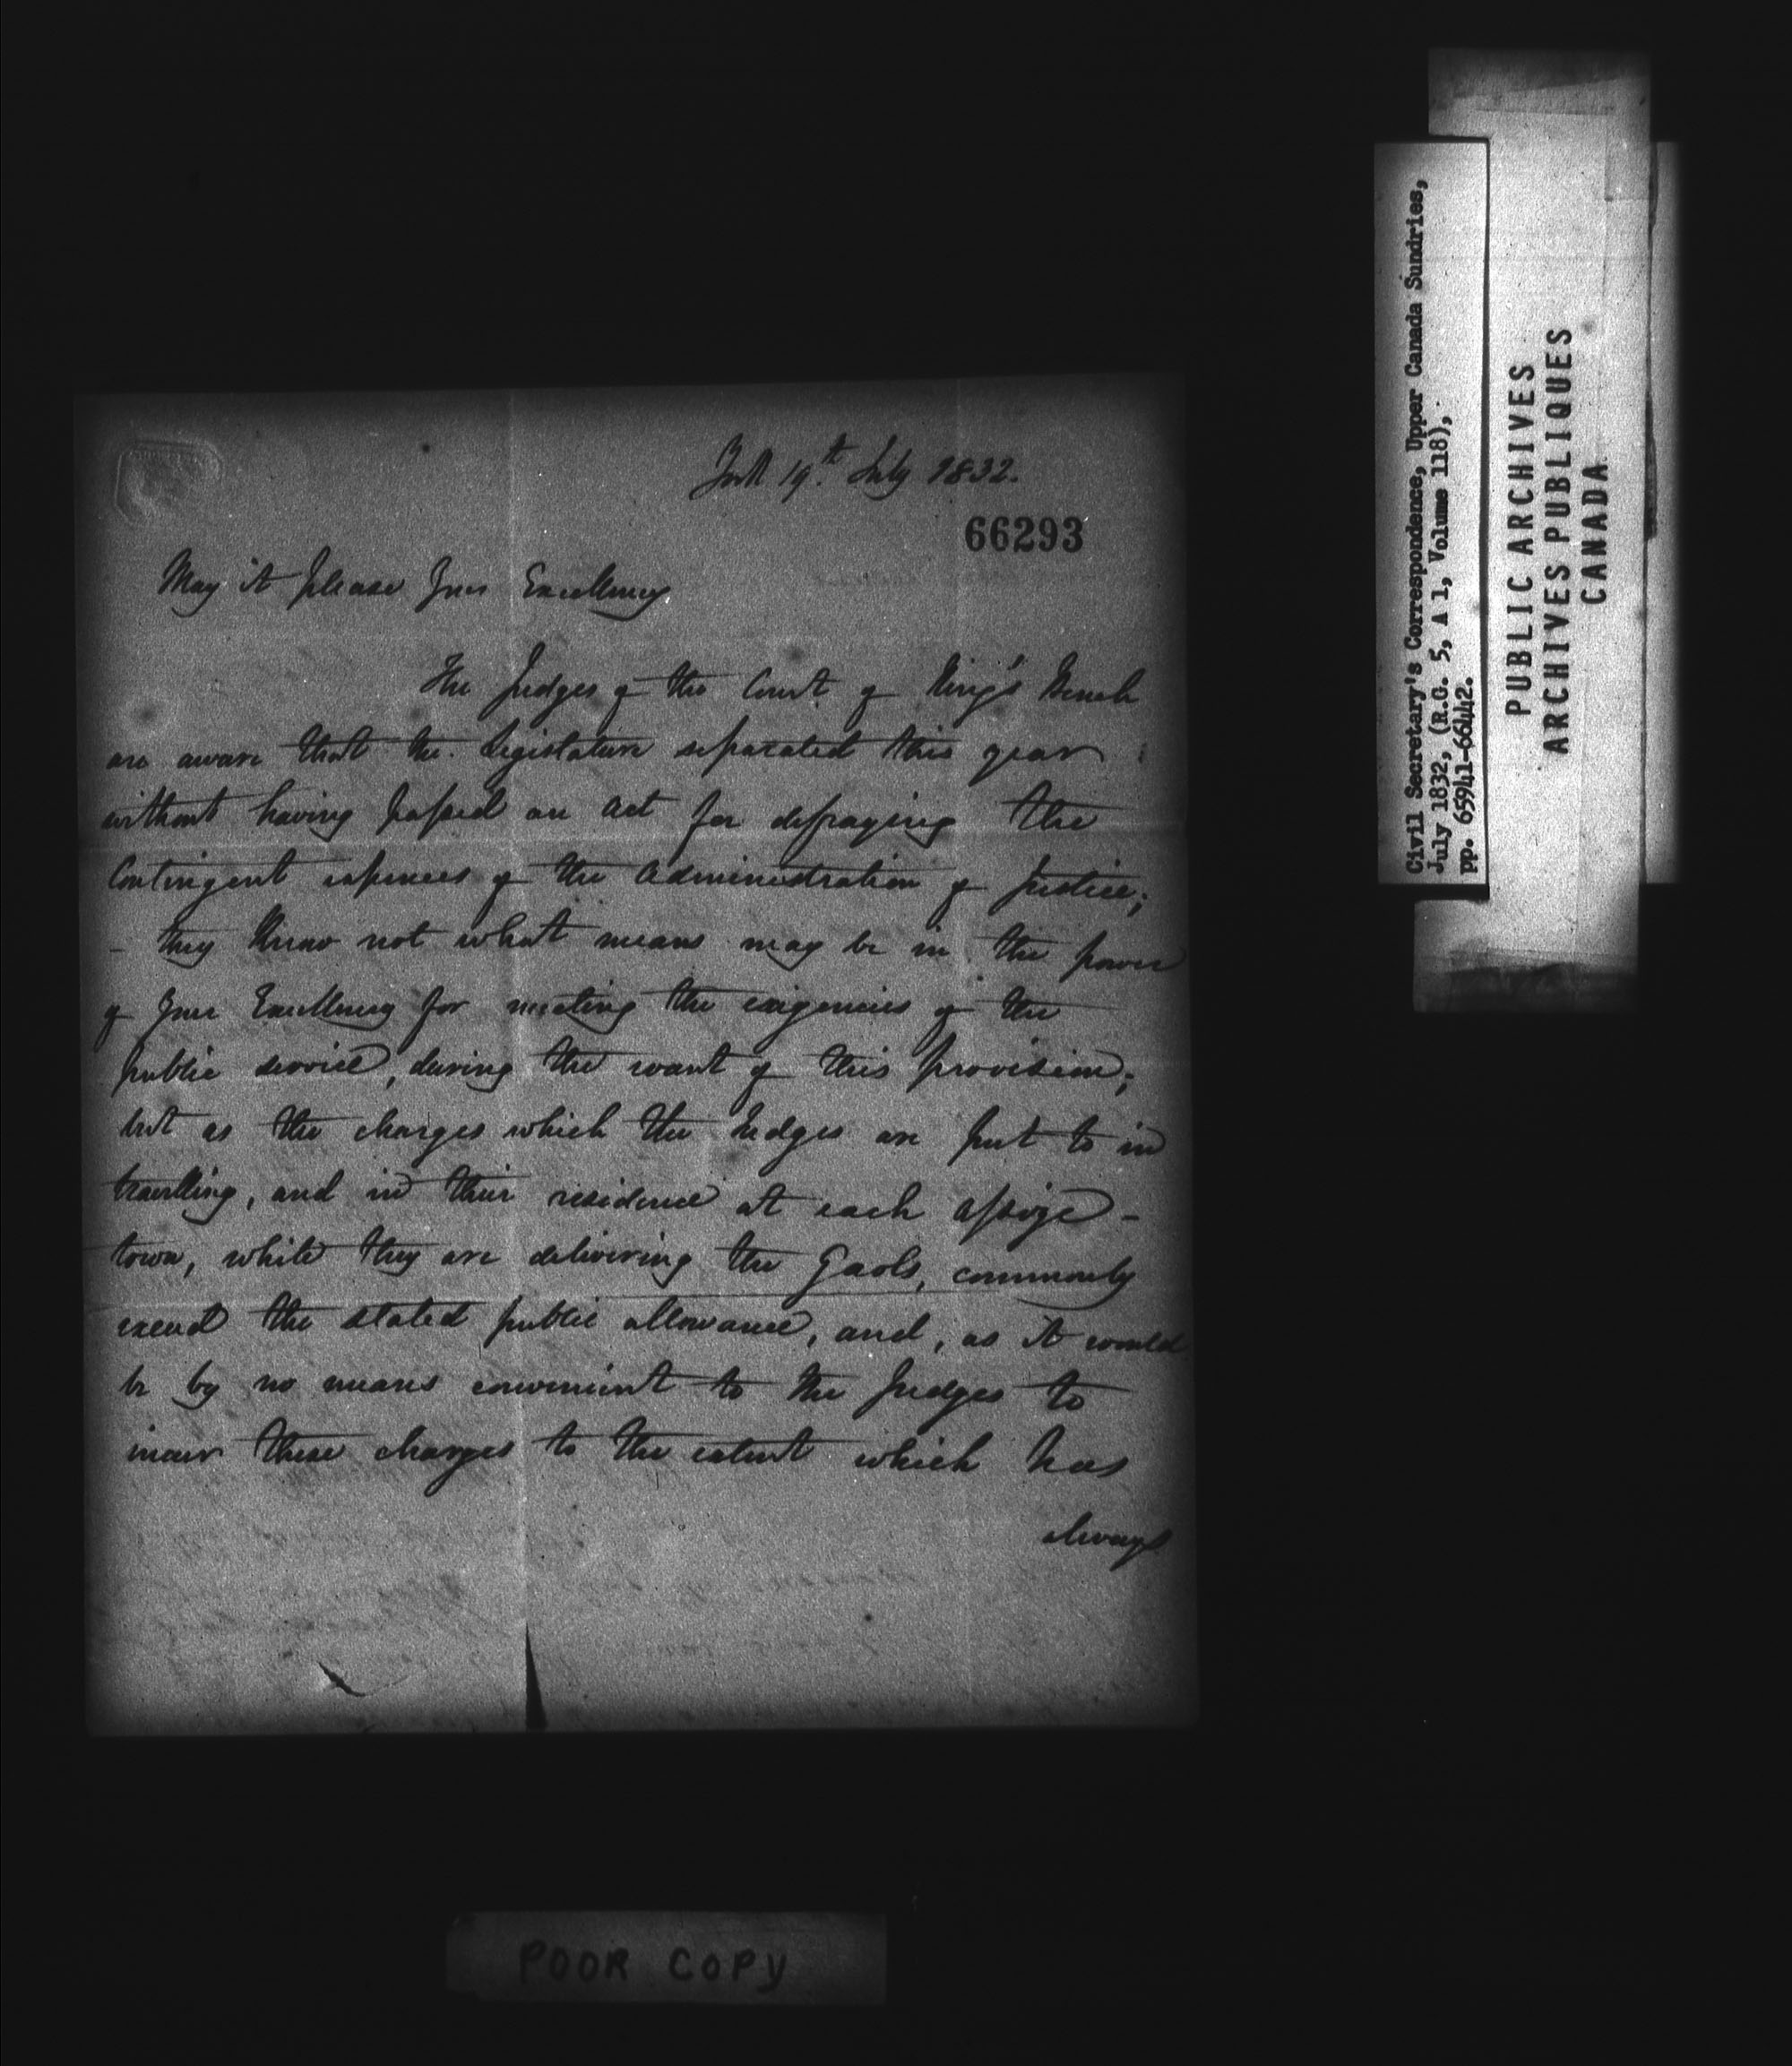 York 19th July 1832.
66293
May it please Your Excellency
The Judges of the Court of King's Bench
are aware that the Legislature separated this year
without having passed an act for defraying the
Contingent expences of the administration of Justice;
- they know not what means may be in the power
of Your Excellency for meeting the exigencies of the
public service, during the want of this provision;
but as the charges which the Judges are put to in
travelling, and in their residence at each assize-
town, while they are delivering the Gaols, commonly
exceed the stated public allowance, and, as it would
be by no means convenient to the Judges to
incur these charges to the extent which has
always
Civil Secretary's Correspondence, Upper Canada Sundries,
July 1832, (R.G. 5, A 1, Volume 118),
pp. 65941-66442.
PUBLIC ARCHIVES
ARCHIVES PUBLIQUES
CANADA
POOR COPY